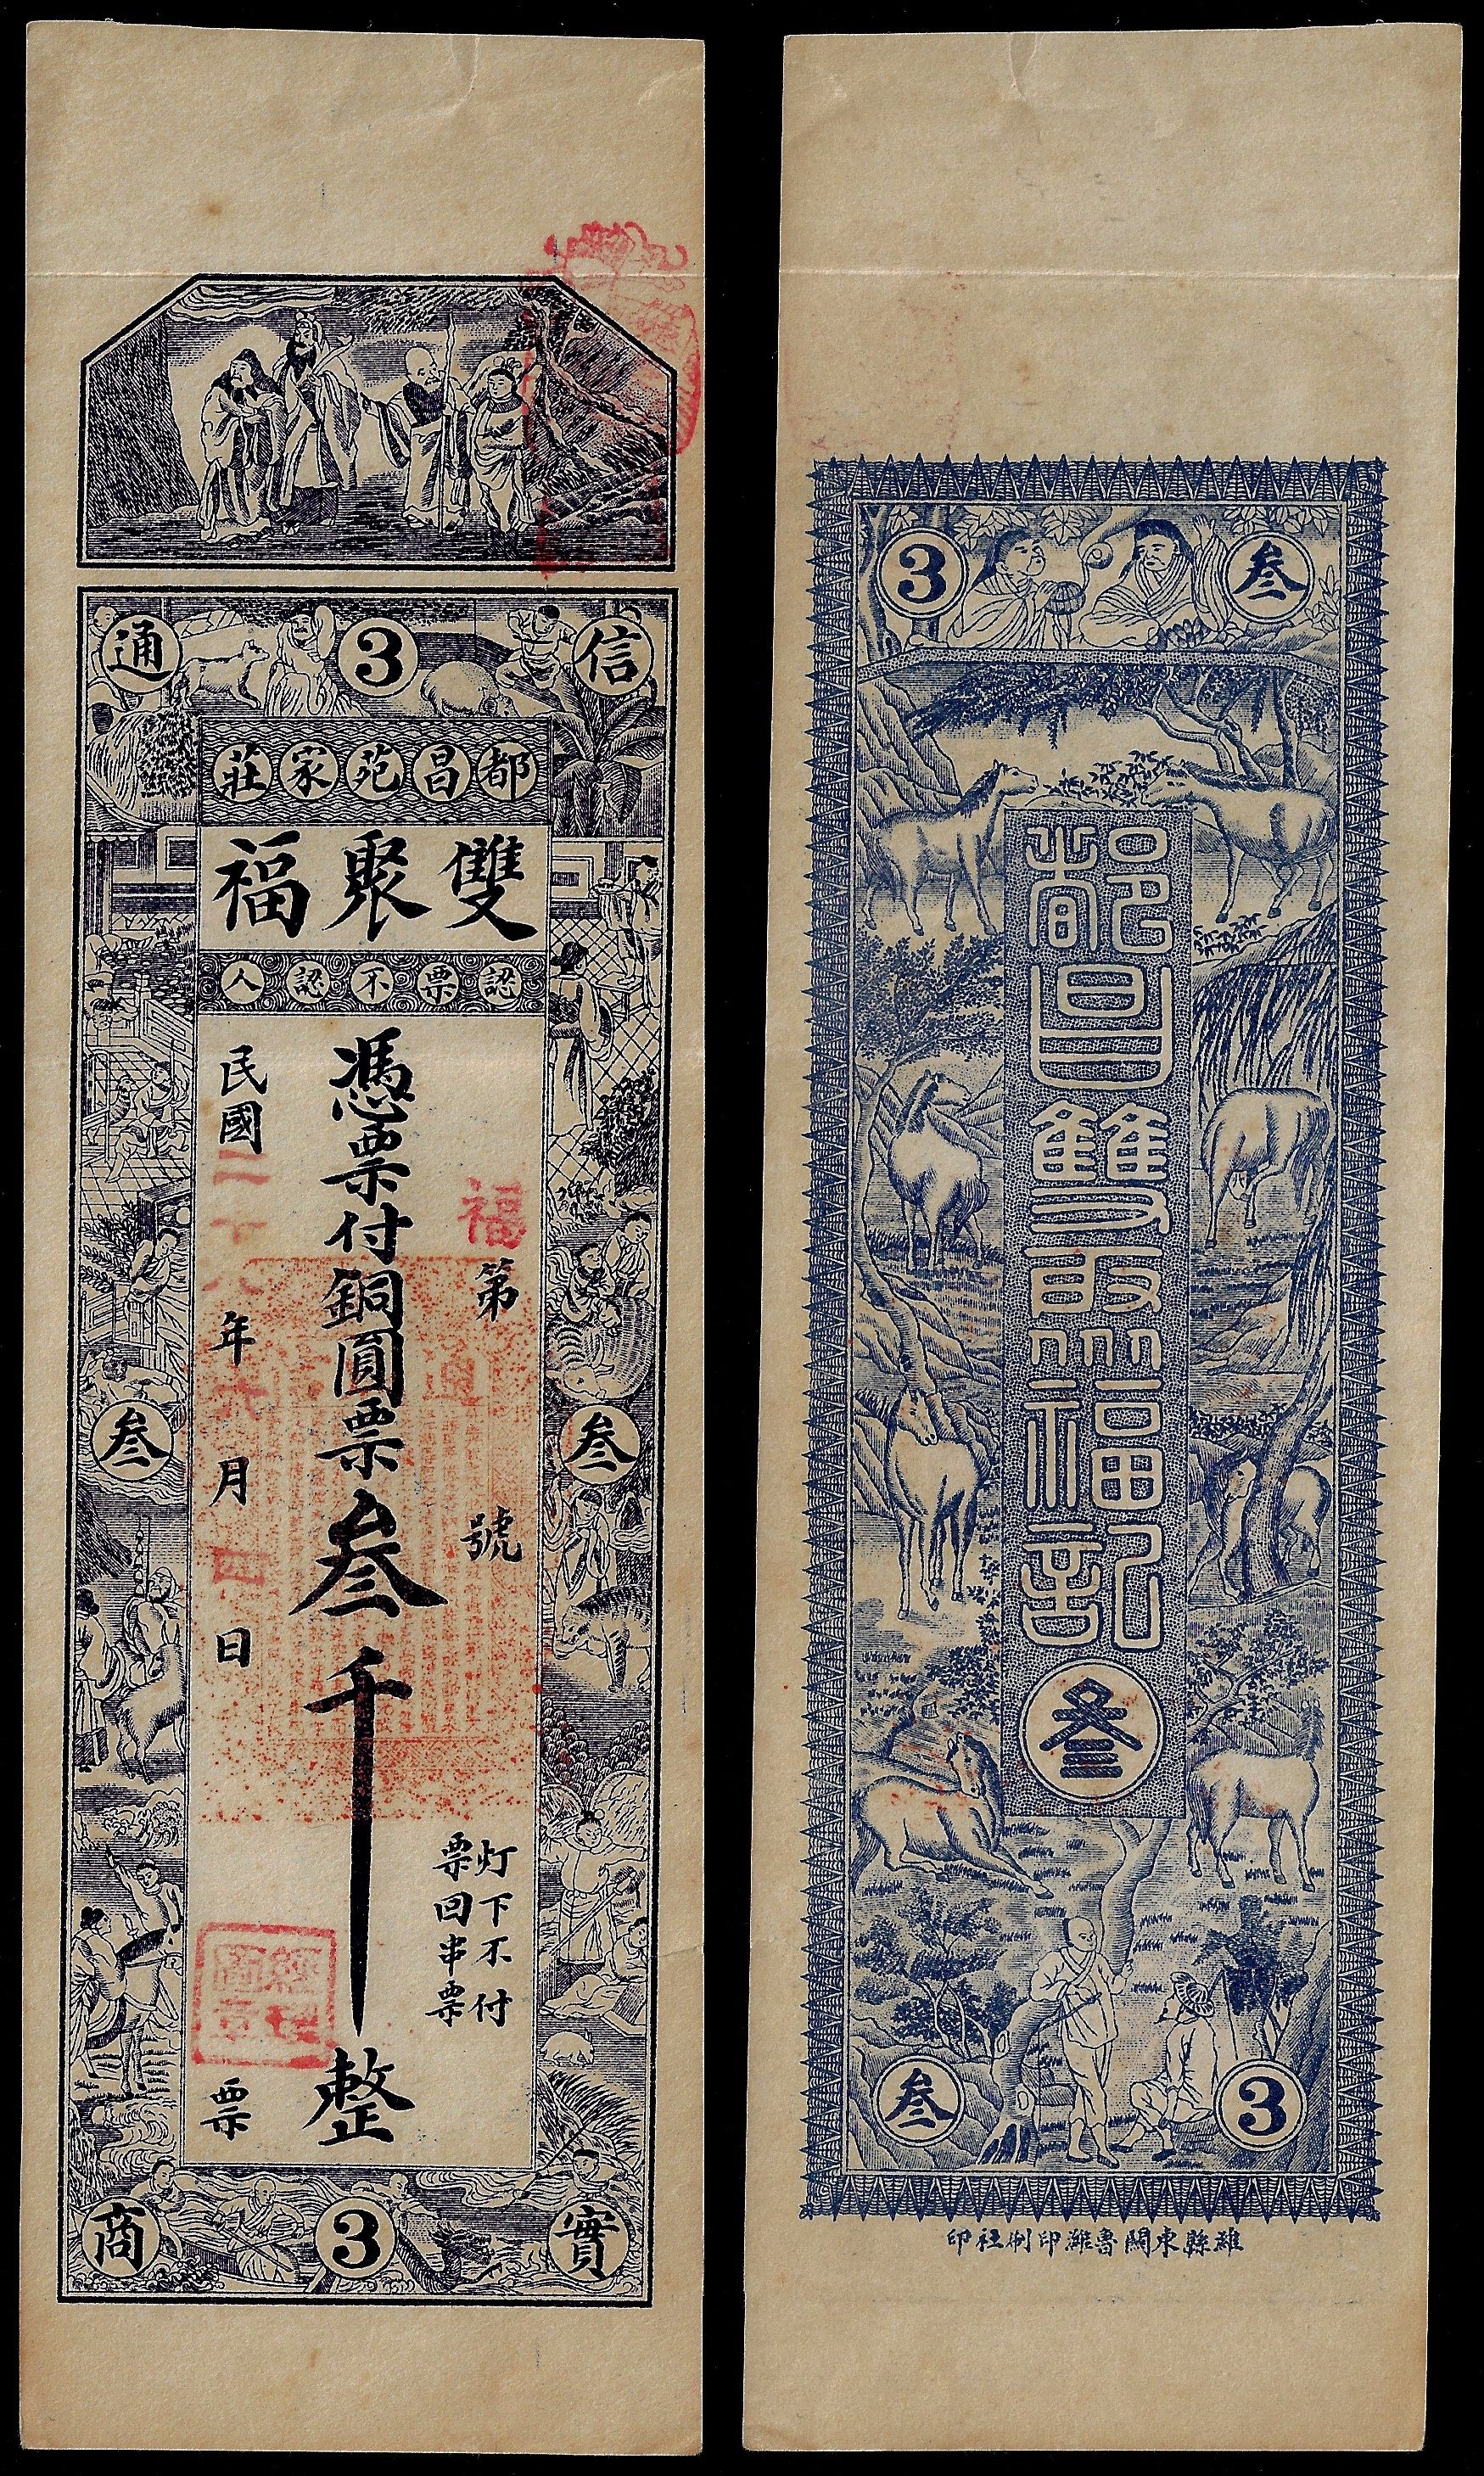 通 3 信
莊家苑昌都
福聚雙
人認不票認
福
第 號
灯下不付
票回串票
憑票付銅圓票叁千整
民國二十八年六月四日
票
叁 叁
商 3 實
3 叁
都昌雙聚福記
叁
叁 3
印社刷印濰魯關東縣濰